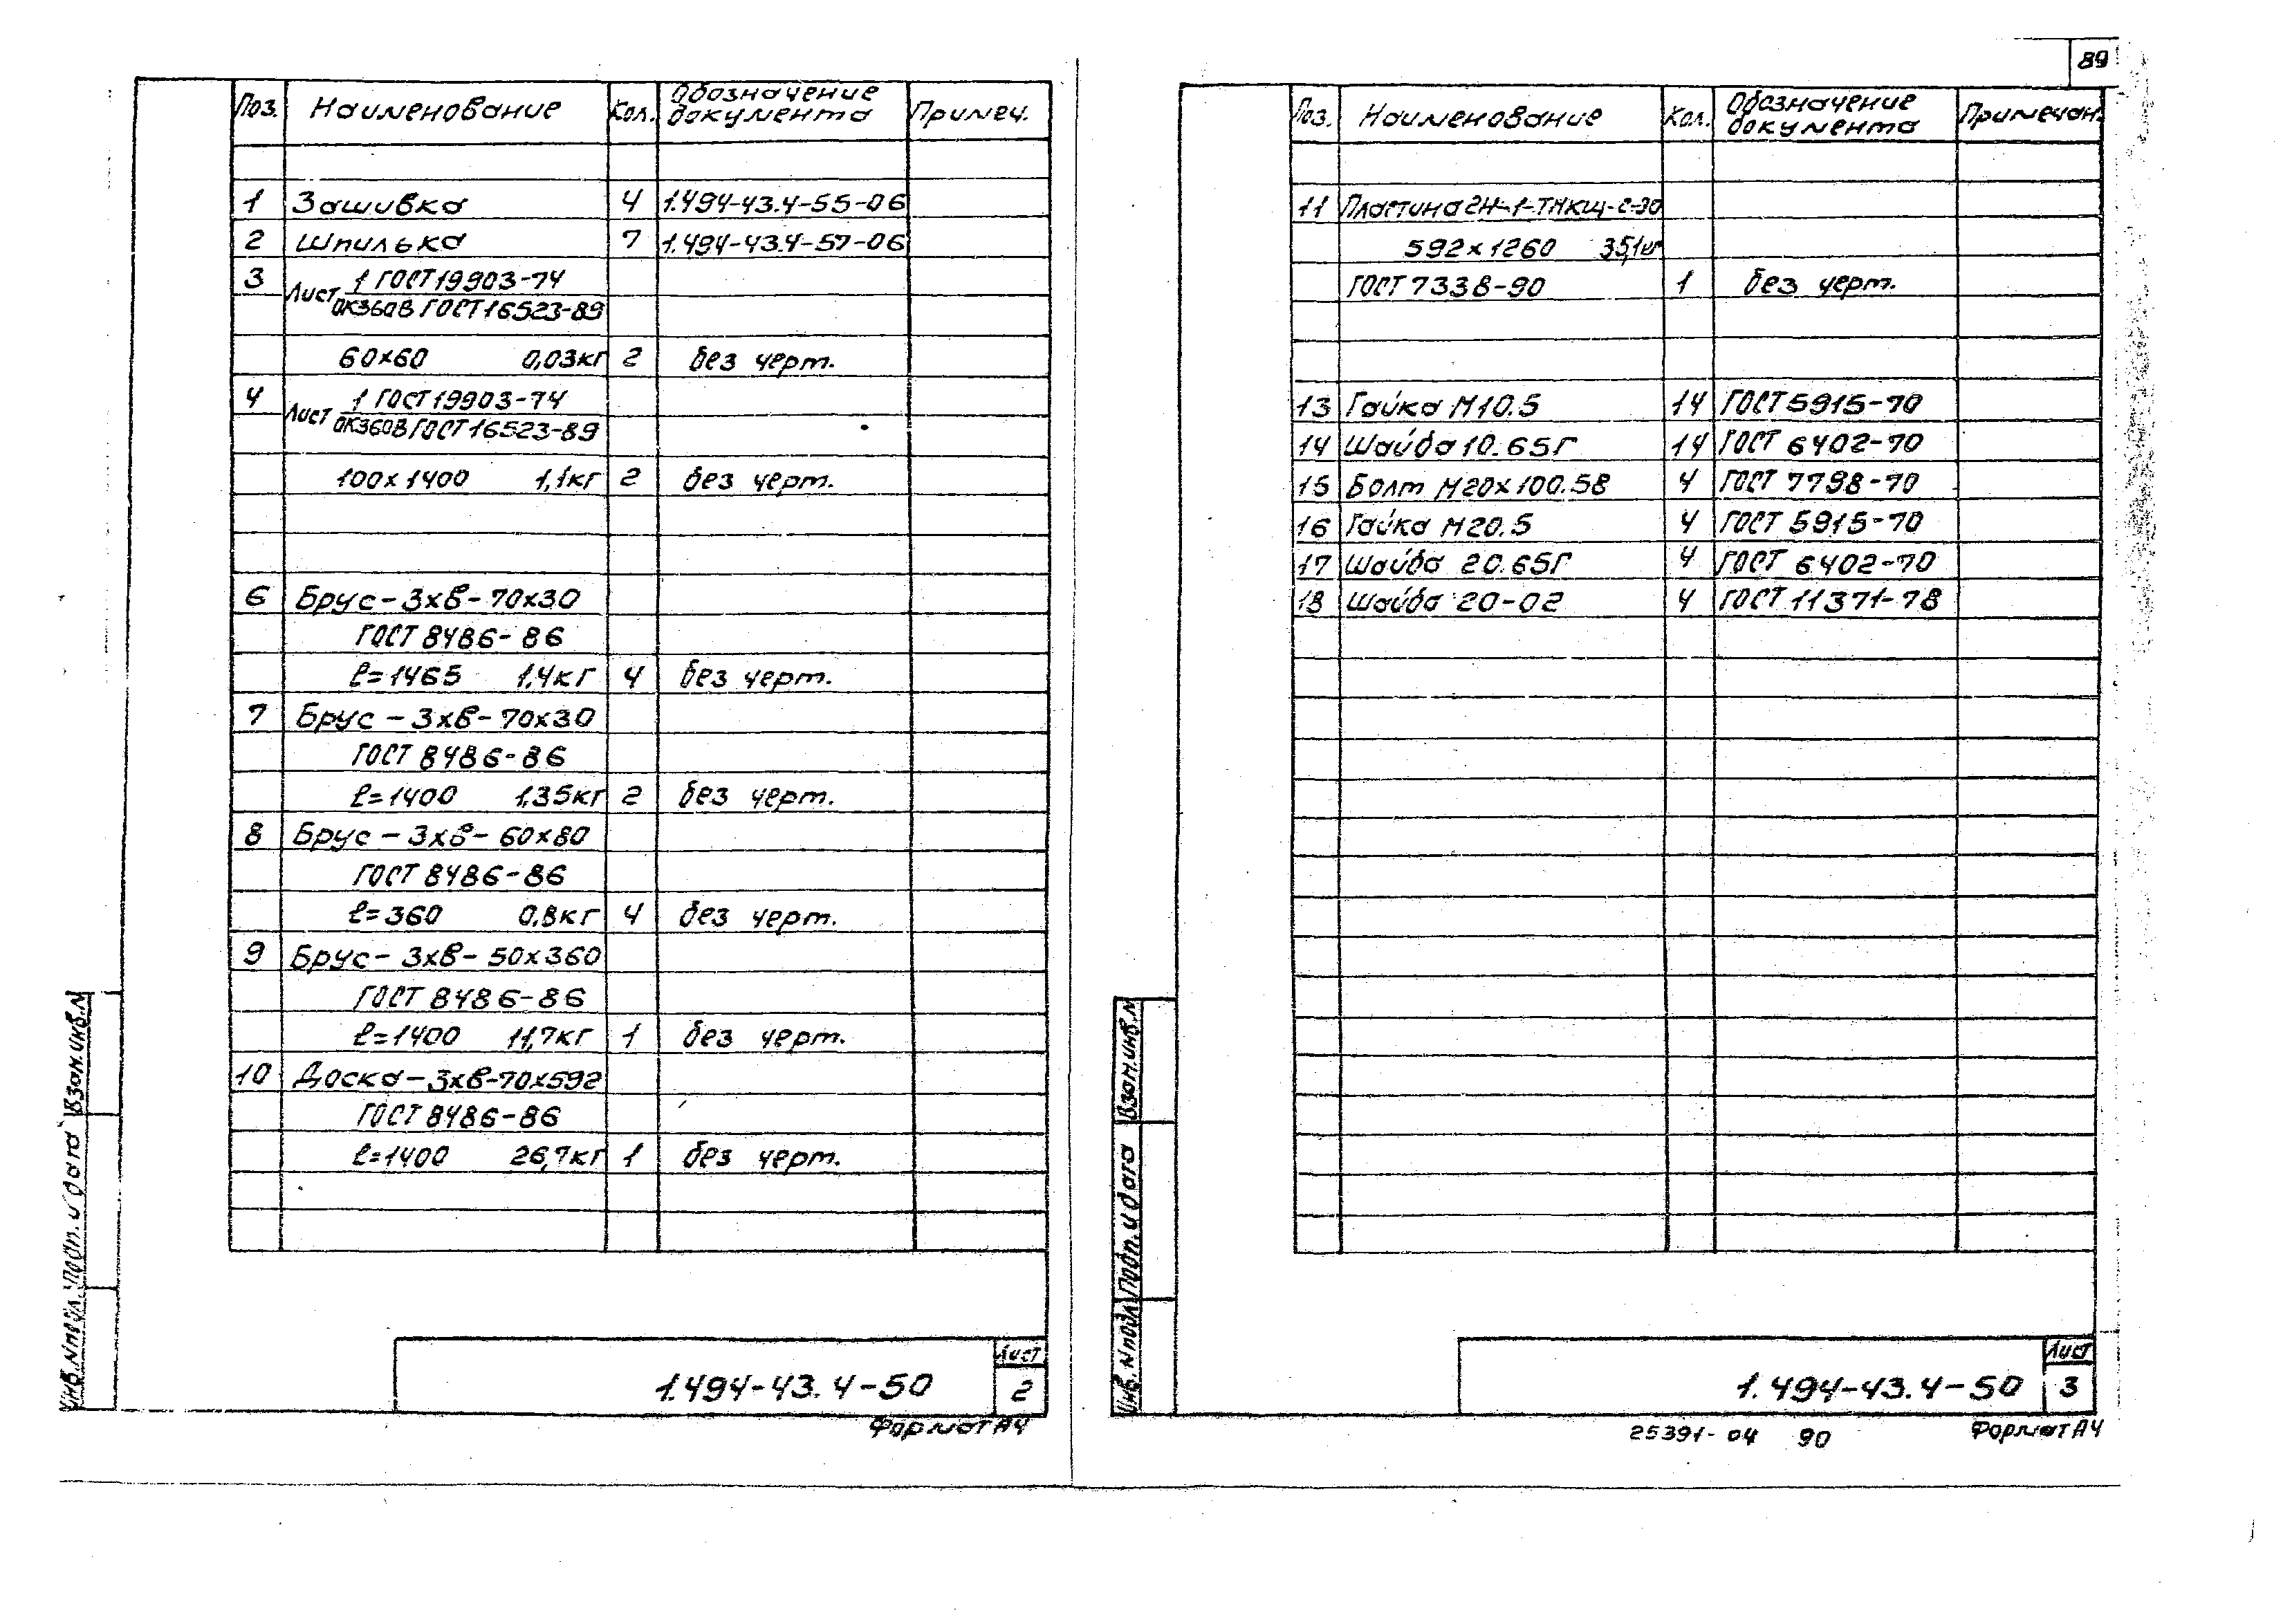 Поз. Наименование Кол. Обозначение документа Примеч.
1 Зашивка 4 1.494-43.4-55-06
2 Шпилька 7 1.494-43.4-57-06
3 Лист 1 ГОСТ 19903-74
ОК360В ГОСТ 16523-89
60х60 0,03кг 2 без черт.
4 Лист 1 ГОСТ 19903-74
ОК360В ГОСТ 16523-89
100х1400 1,1кг 2 без черт.
6 Брус-3хв-70х30
ГОСТ 8486-86
ℓ=1465 1,4кг 4 без черт.
7 Брус-3хв-70х30
ГОСТ 8486-86
ℓ=1400 1,35кг 2 без черт.
8 Брус-3хв-60х80
ГОСТ 8486-86
ℓ=360 0,8кг 4 без черт.
9 Брус-3хв-50х360
ГОСТ 8486-86
ℓ=1400 11,7кг 1 без черт.
10 Доска-3хв-70х592
ГОСТ 8486-86
ℓ=1400 26,7кг 1 без черт.
Взам.инв.N
Подп. и дата
Инв.N подл.
1.494-43.4-50
Лист
2
Формат А4
89
Поз. Наименование Кол. Обозначение документа Примечан.
11 Пластина 2Н-1-ТМКЩ-С-30
592х1260 35,1кг
ГОСТ 7338-90 1 без черт.
13 Гайка М10.5 14 ГОСТ 5915-70
14 Шайба 10.65Г 14 ГОСТ 6402-70
15 Болт М20х100.58 4 ГОСТ 7798-70
16 Гайка М20.5 4 ГОСТ 5915-70
17 Шайба 20.65Г 4 ГОСТ 6402-70
18 Шайба 20-02 4 ГОСТ 11371-78
Взам.инв.N
Подп. и дата
Инв.N подл.
1.494-43.4-50
Лист
3
25391-04 90
Формат А4